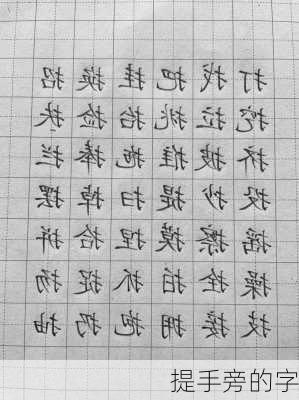 打 找 把 挂 换 招
挖 拉 挑 抬 捡 扶
挤 披 推 拖 捧 拦
投 抄 提 扫 掉 摆
摇 擦 摸 捏 拾 拼
操 拴 拍 抓 捉 扬
技 接 拥 抱 扔 抽
提手旁的字